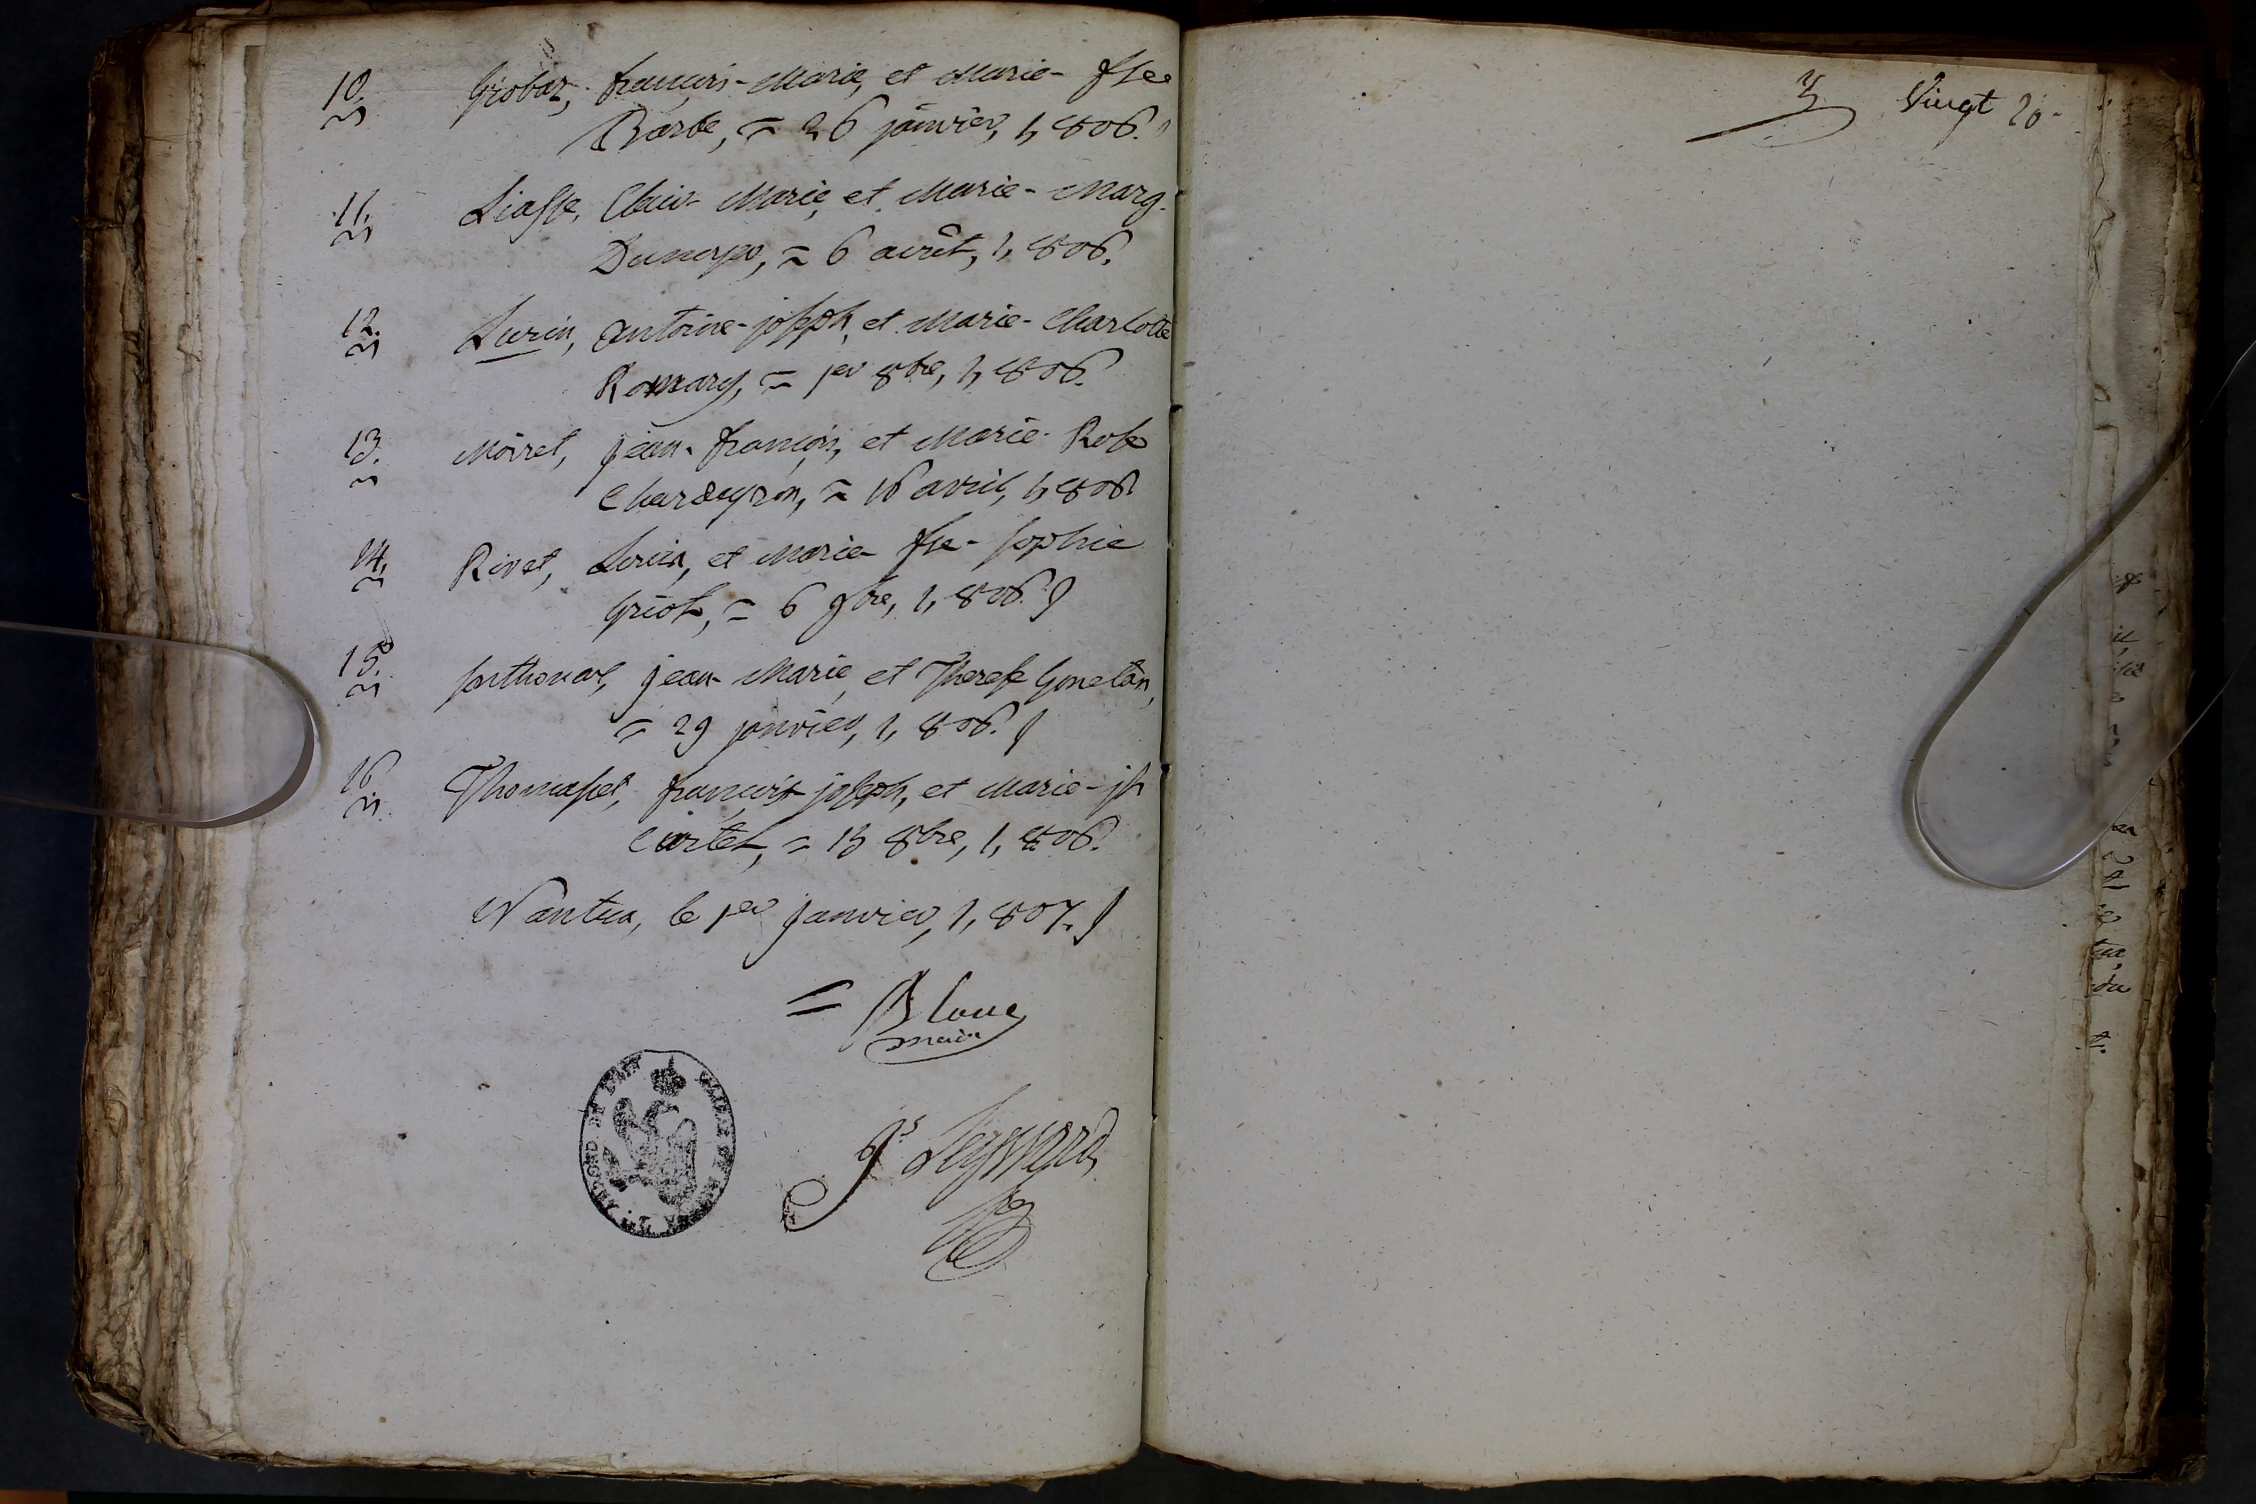 10. Grobaz, françois-Marie, et Marie- fse
Barbe, = 26 janvier, 1,806.
11. Liasse, Marie, et Marie- Marg.
= 6 août, 1,806.
12. Lurin, antoine-joseph, et Marie-Charlotte
Romary, = 1er 8bre, 1,806.
13. Moiret, jean-françois, et Marie-Rose
Chardeyron, = 16 avril, 1,806.
14. Rivet, et Marie-fse-Sophie
Griot, = 6 9bre, 1,806.
15. Sonthonax, jean Marie, et Therese Goneton,
= 29 janvier, 1,806.
16. Thomasset, françois joseph, et Marie-jh
Curtet, = 13 8bre, 1,806.
Nantua, le 1er janvier, 1,807.
= Blanc
maire
Vingt 20.